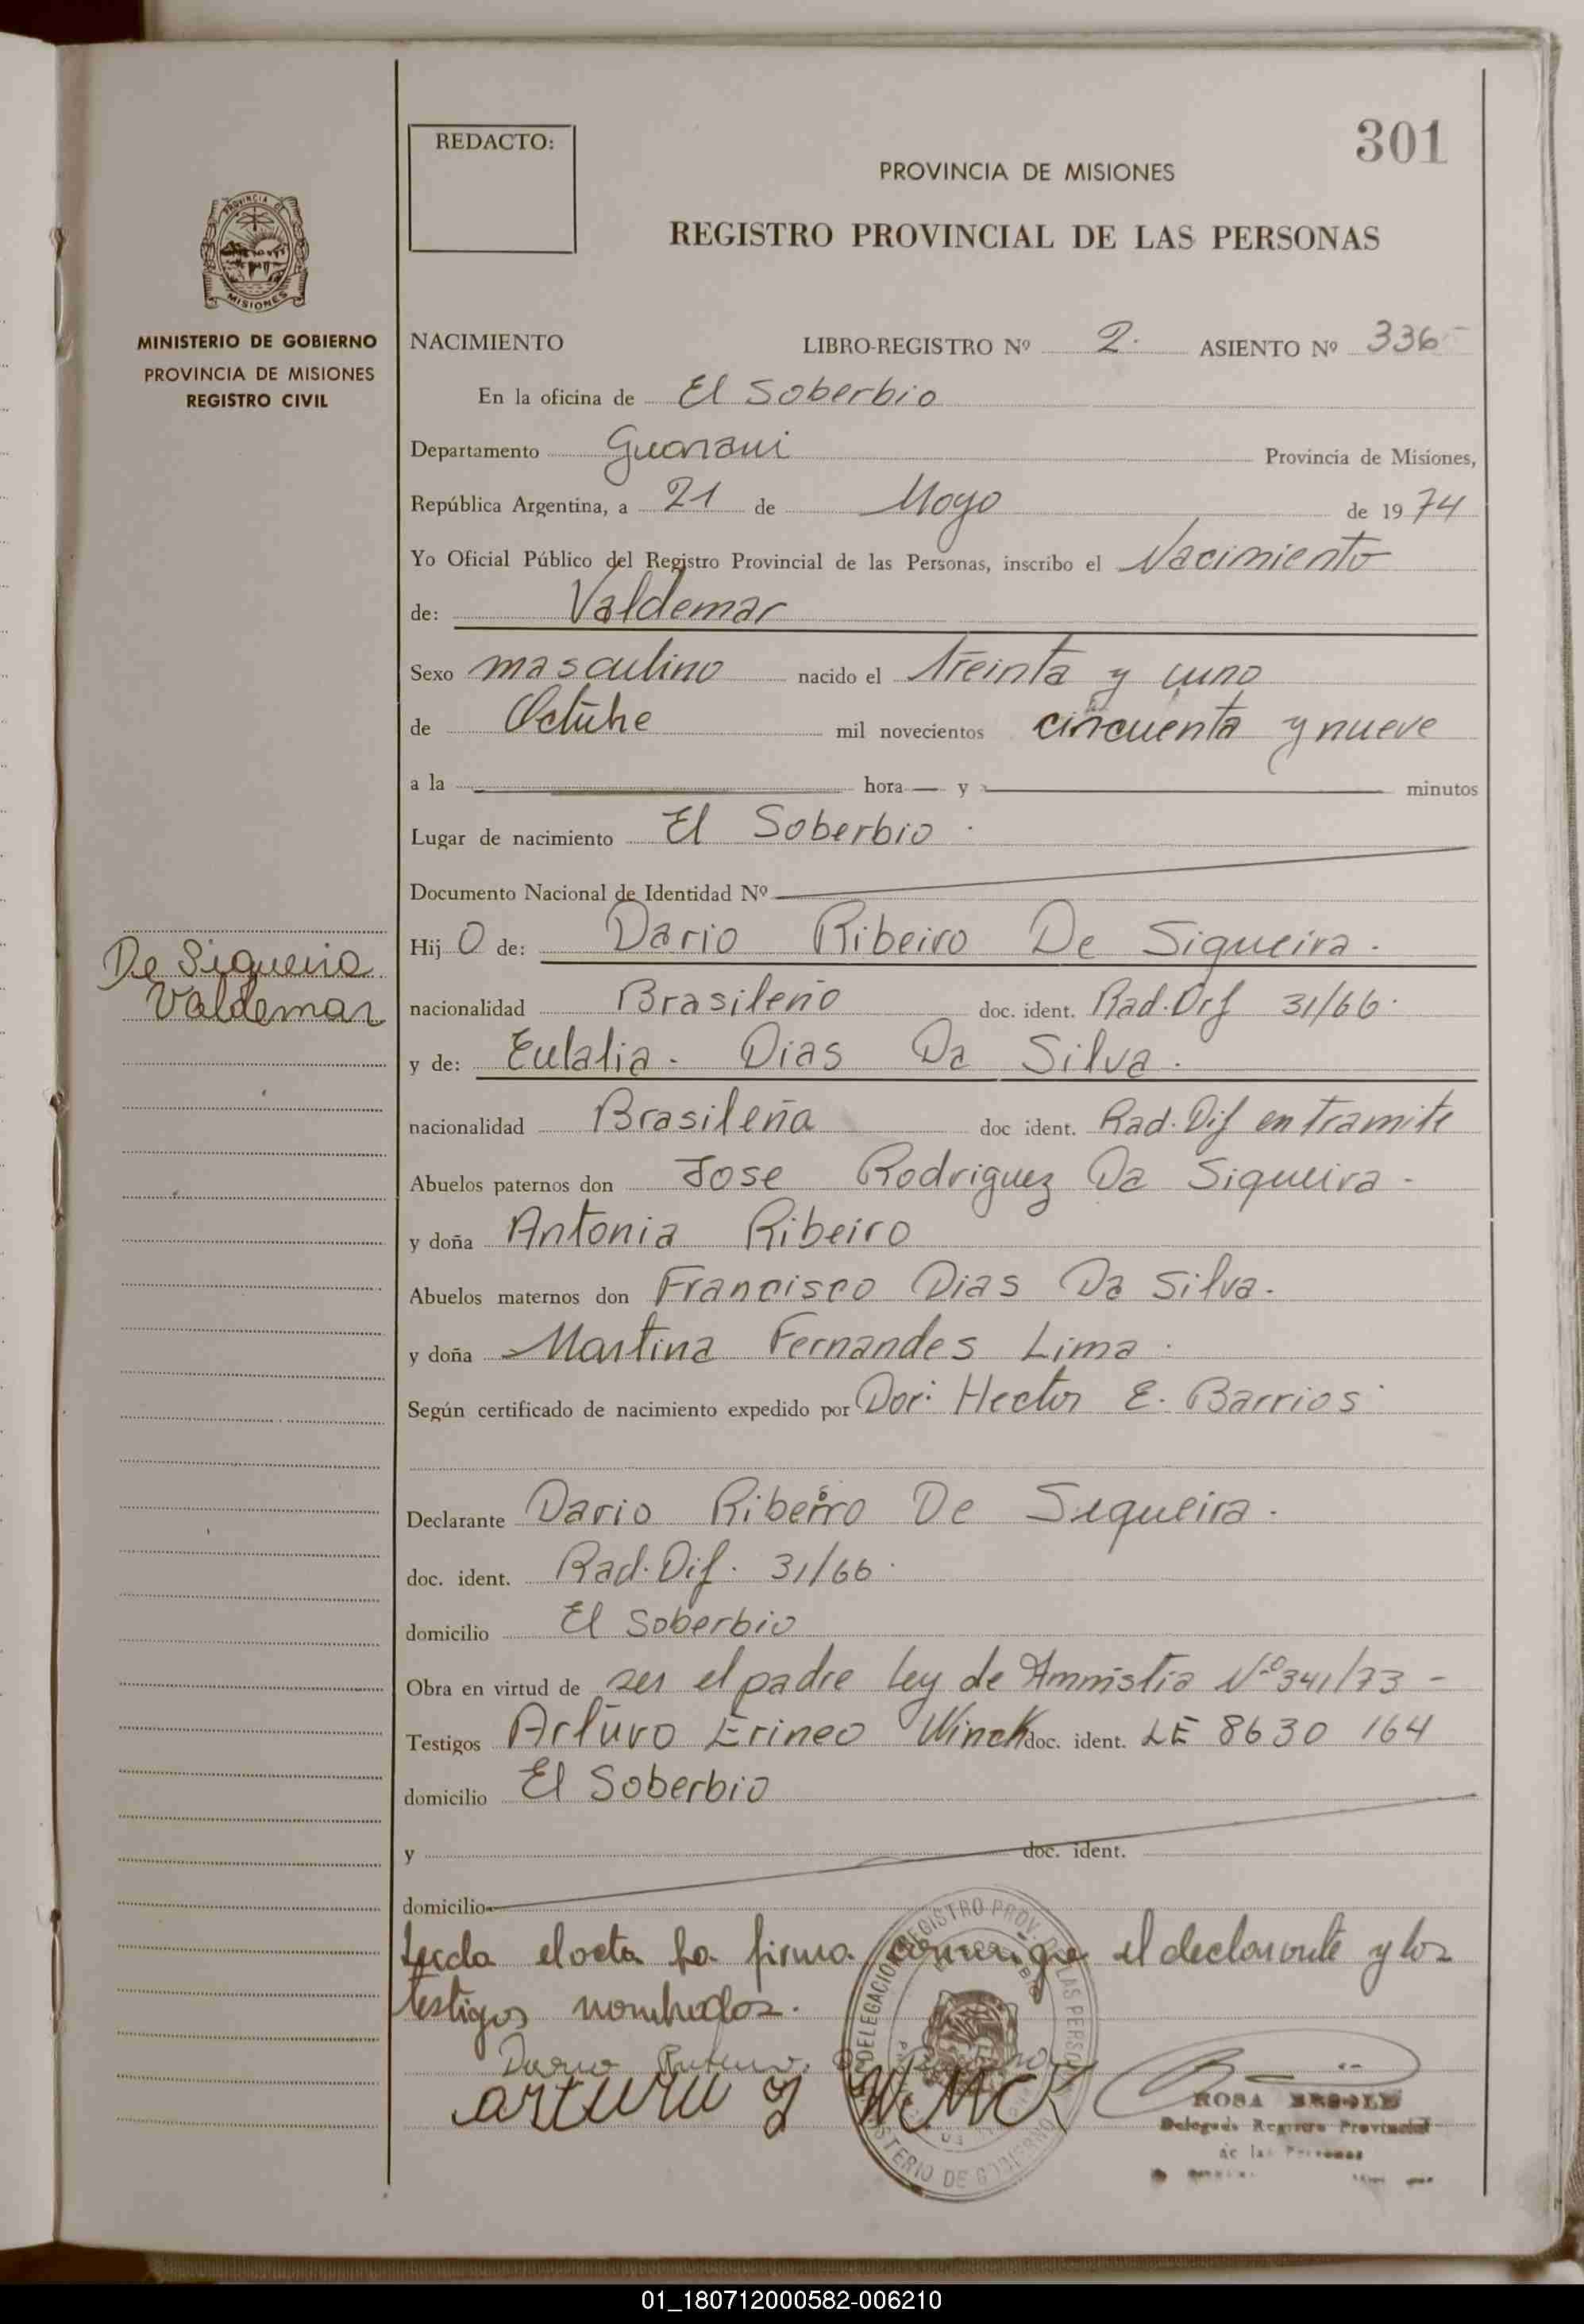 301
REDACTO:
PROVINCIA DE MISIONES
REGISTRO PROVINCIAL DE LAS PERSONAS
PROVINCIA DE
MISIONES
MINISTERIO DE GOBIERNO
PROVINCIA DE MISIONES
REGISTRO CIVIL
NACIMIENTO LIBRO-REGISTRO Nº 2. ASIENTO Nº 336
En la oficina de El Soberbio
Departamento Guarani Provincia de Misiones,
República Argentina, a 21 de Mayo de 1974
Yo Oficial Público del Registro Provincial de las Personas, inscribo el Nacimiento
de: Valdemar
Sexo masculino nacido el treinta y uno
de Octubre mil novecientos cincuenta y nueve
a la hora y minutos
Lugar de nacimiento El Soberbio.
Documento Nacional de Identidad Nº
Hij O de: Dario Ribeiro De Siqueira.
De Siqueira
Valdemar
nacionalidad Brasileño doc. ident. Rad. Dif 31/66.
y de: Eulalia. Dias Da Silva.
nacionalidad Brasileña doc ident. Rad. Dif en tramite
Abuelos paternos don Jose Rodriguez Da Siqueira.
y doña Antonia Ribeiro
Abuelos maternos don Francisco Dias Da Silva.
y doña Martina Fernandes Lima.
Según certificado de nacimiento expedido por Dor: Hector E. Barrios
Declarante Dario Ribeiro De Siqueira.
doc. ident. Rad. Dif. 31/66.
domicilio El Soberbio
Obra en virtud de ser el padre Ley de Amnistia Nº 341/73 -
Testigos Arturo Erineo Winck doc. ident. LE 8630 164
domicilio El Soberbio
y doc. ident.
domicilio
Leida el acta la firma conmigo el declarante y los
testigos nombrados.
Dario
arturo Winck
DELEGACION REGISTRO PROV. DE LAS PERSONAS
MINISTERIO DE GOBIERNO
ROSA
Delegada Registro Provincial
de las Personas
01_180712000582-006210